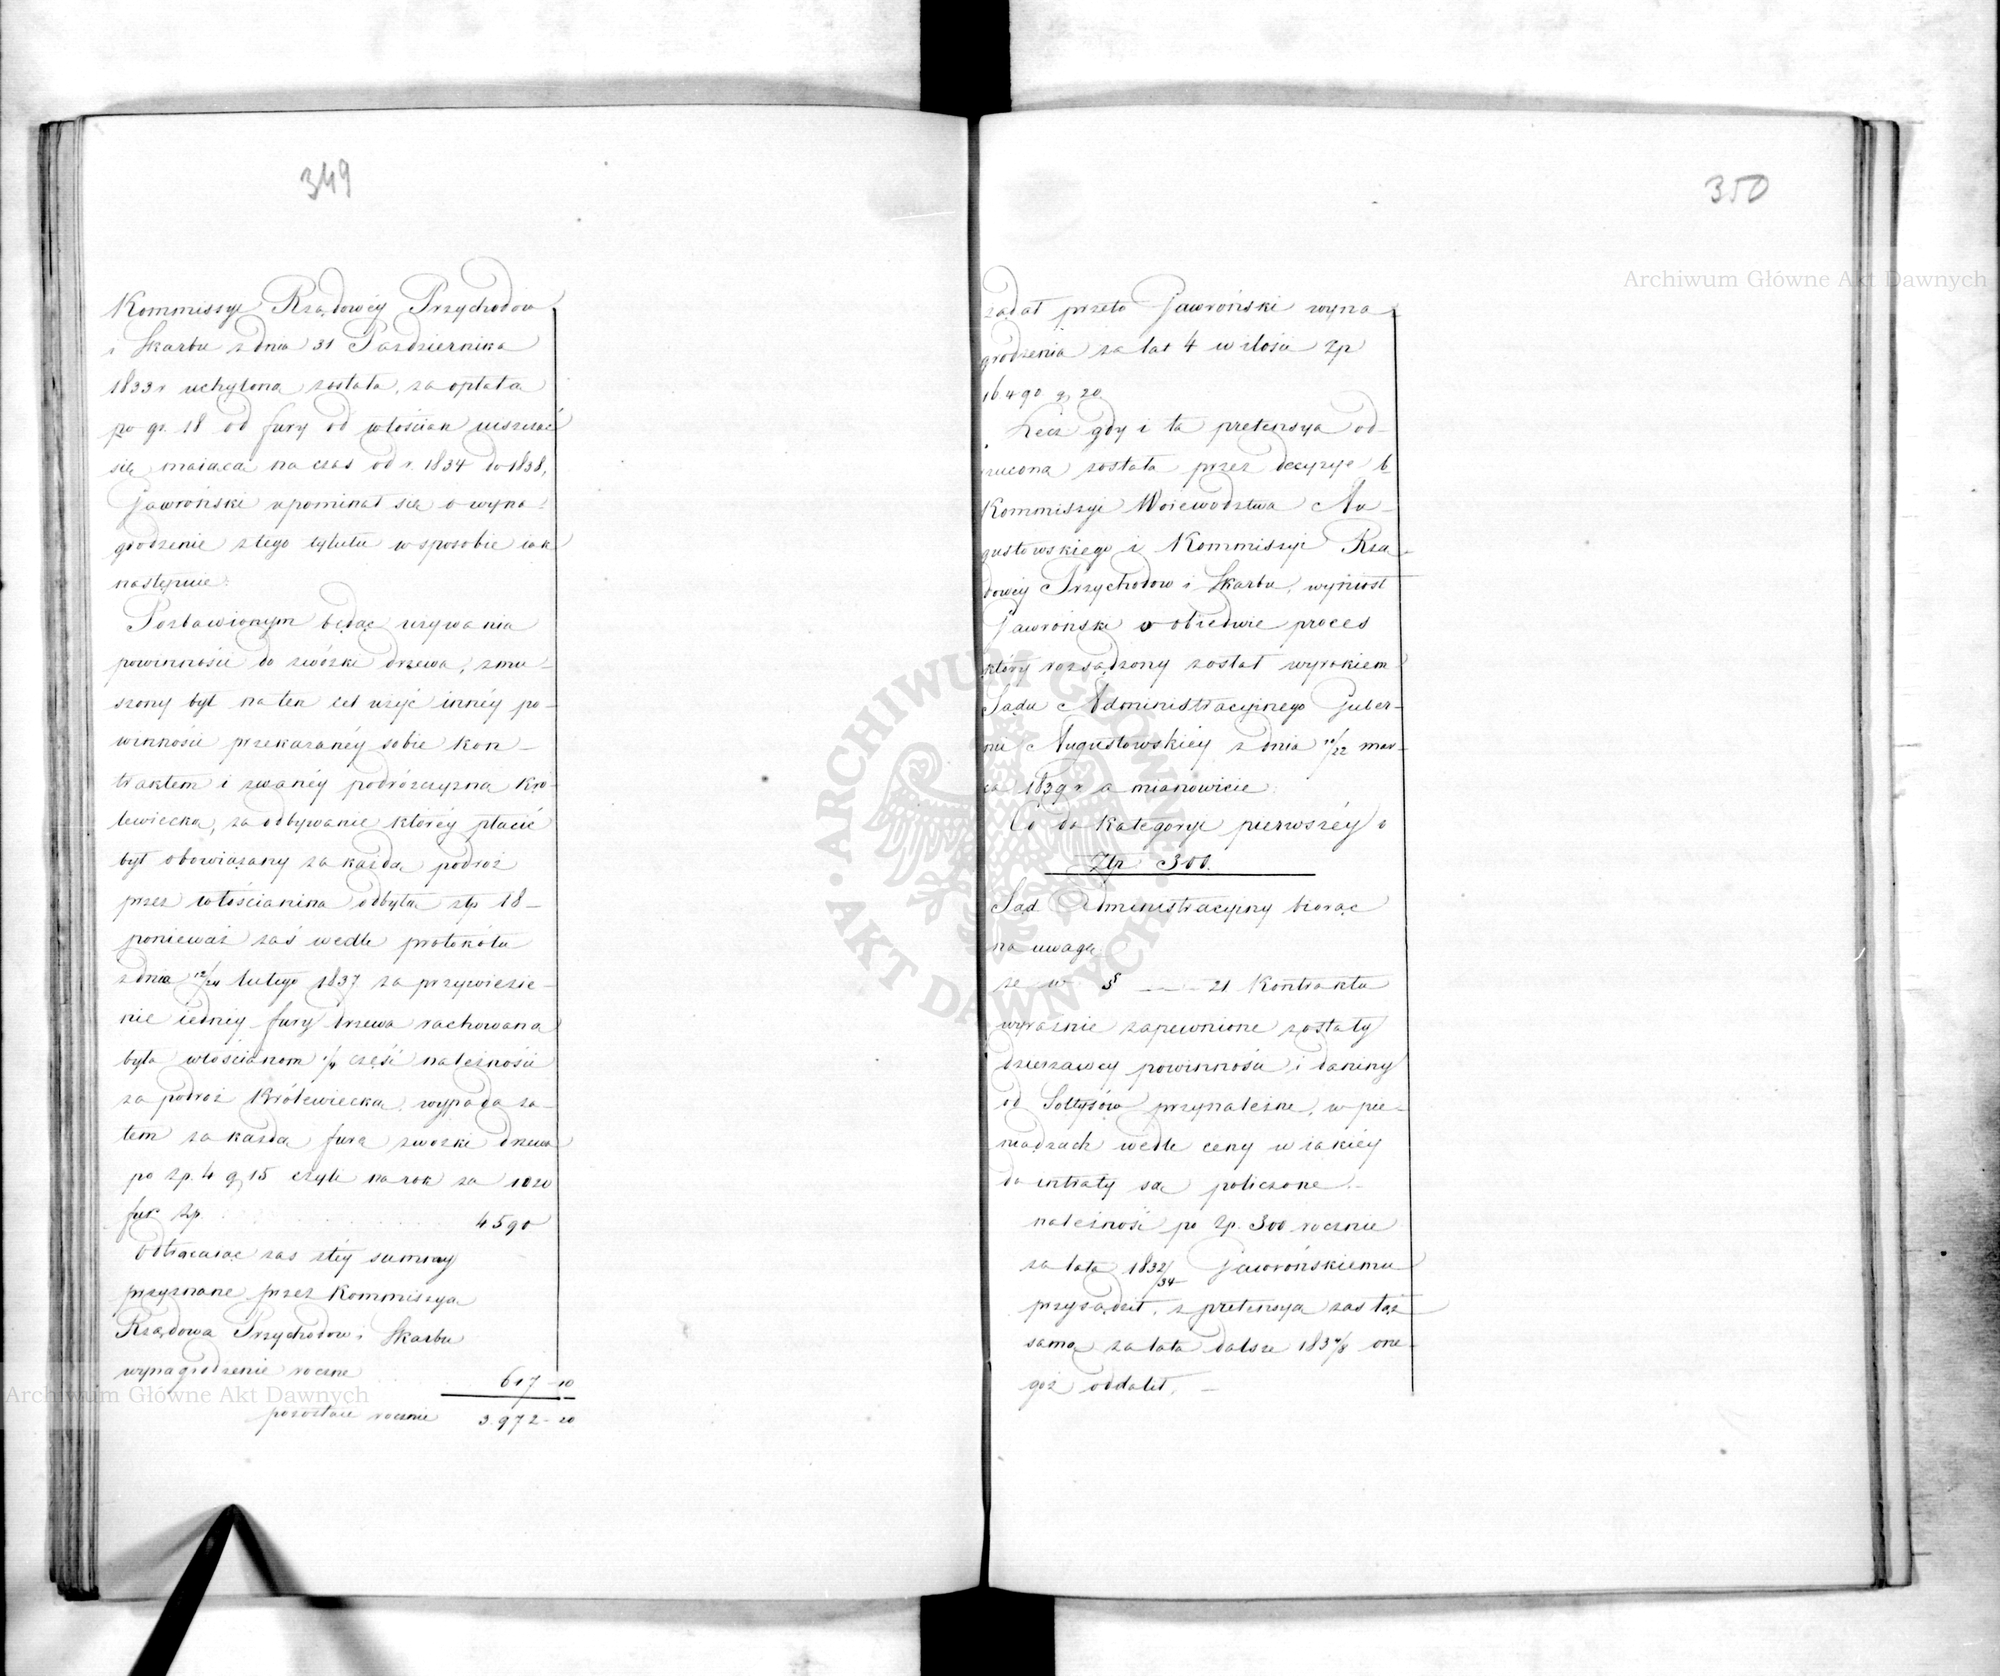 349
Kommissyi Rządowéy Przychodów
i Skarbu z dnia 31 Pazdziernika
1833 r uchylona została, za opłatą
po gr. 18 od fury od włościan uiszczać
się maiącą na czas od r. 1834 do 1838,
Jawroński upominał się o wyna-
grodzenie z tego tytułu w sposobie iak
następuie:
Pozbawionym będąc używania
powinności do zwózki drzewa, zmu-
szony był na ten cel użyć innéy po-
winności przekazanéy sobie kon-
traktem i zwanéy podróżczyzną Kró-
lewiecką, za odbywanie któréy płacić
był obowiązany za każdą podróż
przez włościanina odbytą złp 18 -
ponieważ zaś wedle protokółu
z dnia 12/24 lutego 1837 za przywiezie-
nie iednéy fury drzewa rachowana
była włościanom 1/4 część należności
za podróż Królewiecką, wypada za-
tem za każdą furę zwózki drzewa
po zp. 4 g 15 czyli na rok za 1020
fur Zp. 4590
Odtrącaiąc zas z téy summy
przyznane przez Kommissyą
Rządową Przychodow i Skarbu
wynagrodzenie roczne 617 - 10
pozostaie rocznie 3.972 - 20
350
żądał przeto Jawroński wyna-
grodzenia za lat 4 w ilości Zp
16490 g. 20
Lecz gdy i ta pretensya od-
rzucona została przez decyzye b
Kommissyi Woiewodztwa Au-
gustowskiego i Kommissyi Rzą-
dowéy Przychodow i Skarbu, wyniósł
Jawroński o obiedwie proces
który rozsądzony został wyrokiem
Sądu Administracyinego Guber-
nii Augustowskiéy z dnia 10/22 mar-
ca 1839 r a mianowicie:
Co do Kategoryi pierwszéy o
Złp 300.
Sąd Administracyiny biorąc
na uwagę:
że w § 21 Kontraktu
wyraznie zapewnione zostały
dzierzawcy powinności i daniny
od Sołtysów przynależne, w pie-
niądzach wedle ceny w iakiéy
do intraty są policzone.-
należność po Zp. 300 rocznie
za lata 1832/34 Jawrońskiemu
przysądził, z pretensyą zas tąż
samą za lata dalsze 1834/8 one-
goż oddalił.
Archiwum Główne Akt Dawnych
Archiwum Główne Akt Dawnych
ARCHIWUM GŁÓWNE AKT DAWNYCH